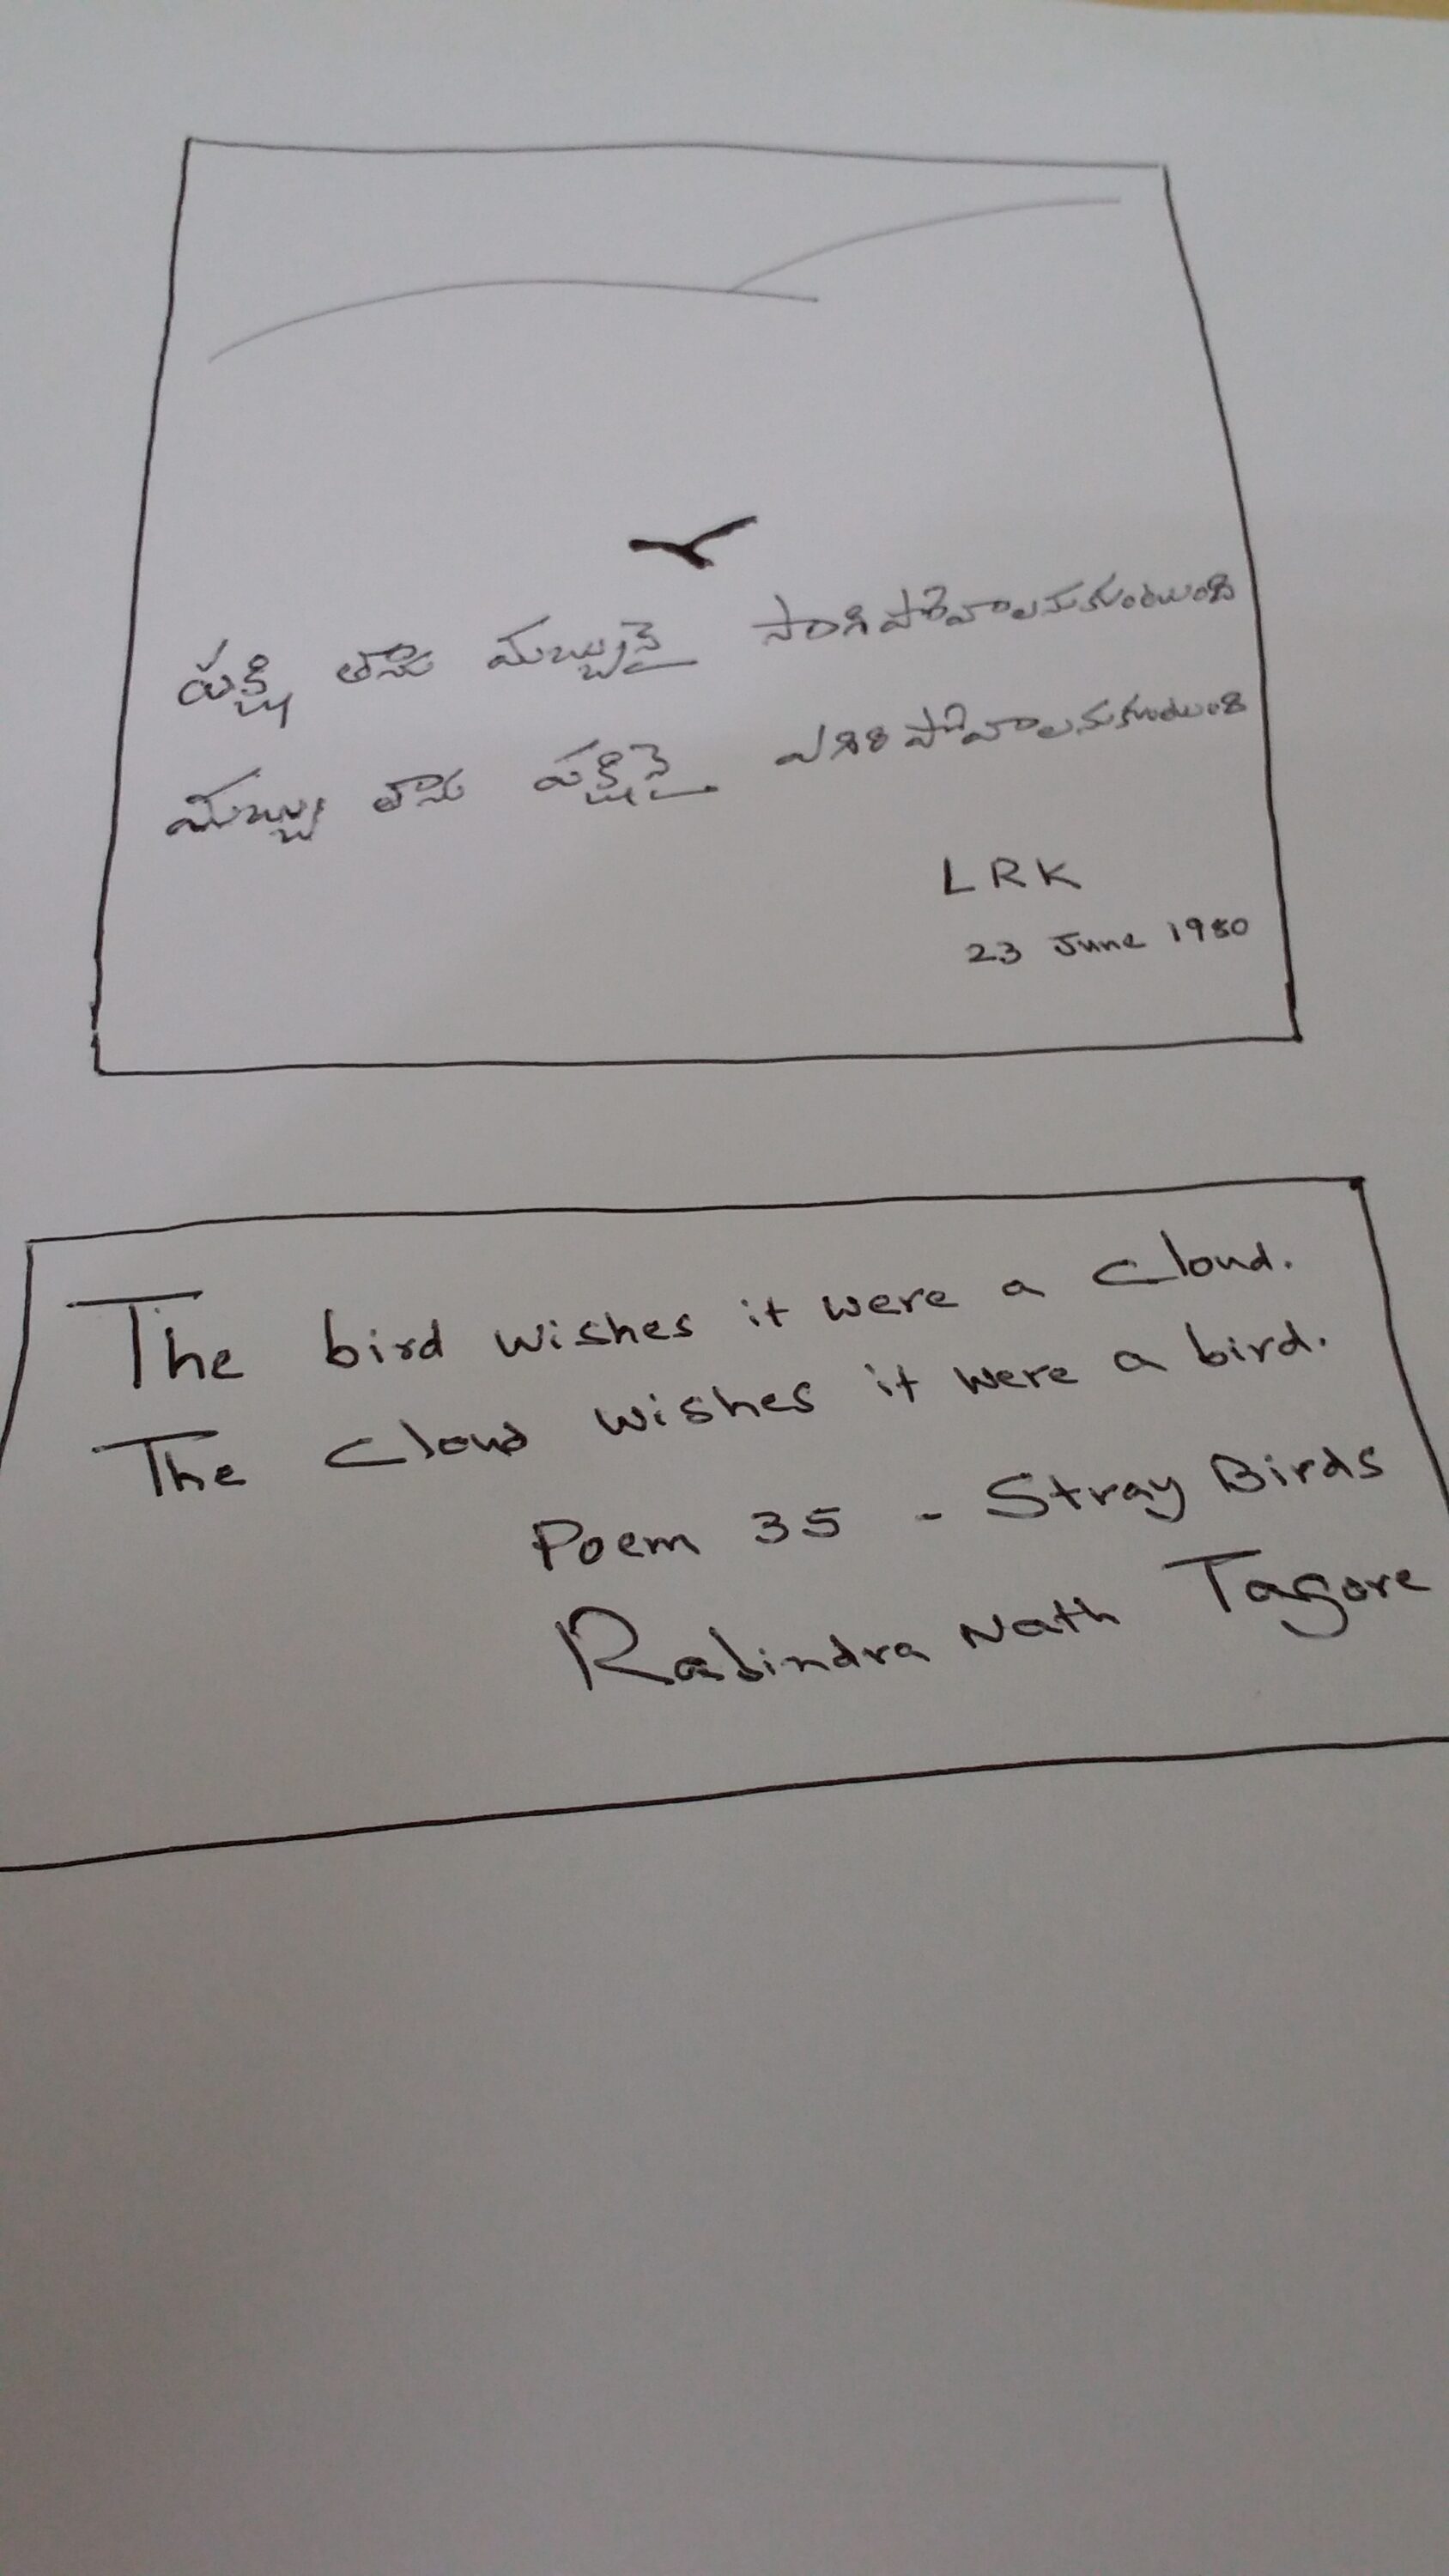 పక్షి తాను మబ్బునై సాగిపోవాలనుకుంటుంది
మబ్బు తాను పక్షినై ఎగిరిపోవాలనుకుంటుంది
LRK
23 June 1980
The bird wishes it were a cloud.
The cloud wishes it were a bird.
Poem 35 - Stray Birds
Rabindra Nath Tagore